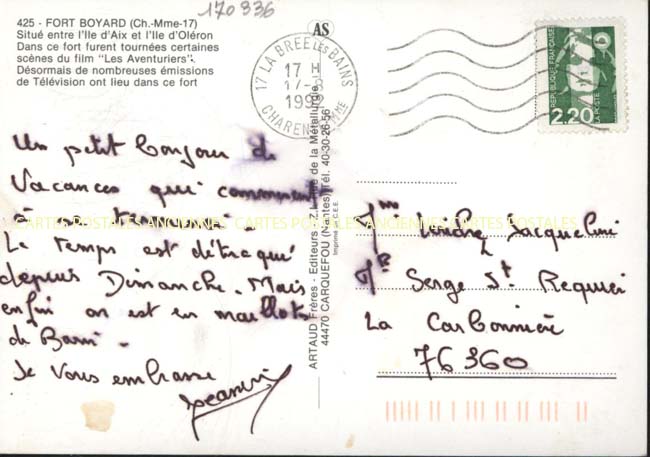 170336
425 - FORT BOYARD (Ch.-Mme-17)
Situé entre l'Ile d'Aix et l'Ile d'Oléron
Dans ce fort furent tournées certaines
scènes du film "Les Aventuriers".
Désormais de nombreuses émissions
de Télévision ont lieu dans ce fort
AS
17 LA BREE LES BAINS
17 H
17-
199
CHARENTE MME
REPUBLIQUE FRANÇAISE
2,20
LA POSTE
Un petit bonjour de
Vacances qui commencent
à
Le temps est détraqué
depuis Dimanche. Mais
enfin on est en maillots
de Bain.
Je vous embrasse
ARTAUD Frères - Editeurs - Z.I. rue de la Métallurgie
44470 CARQUEFOU (Nantes) Tél. 40-30-26-56
Imprimé en C.E.E.
CARTES POSTALES ANCIENNES CARTES POSTALES ANCIENNES CARTES POSTALES
Mme Jacqueline
Serge St
La Carbonnière
76360